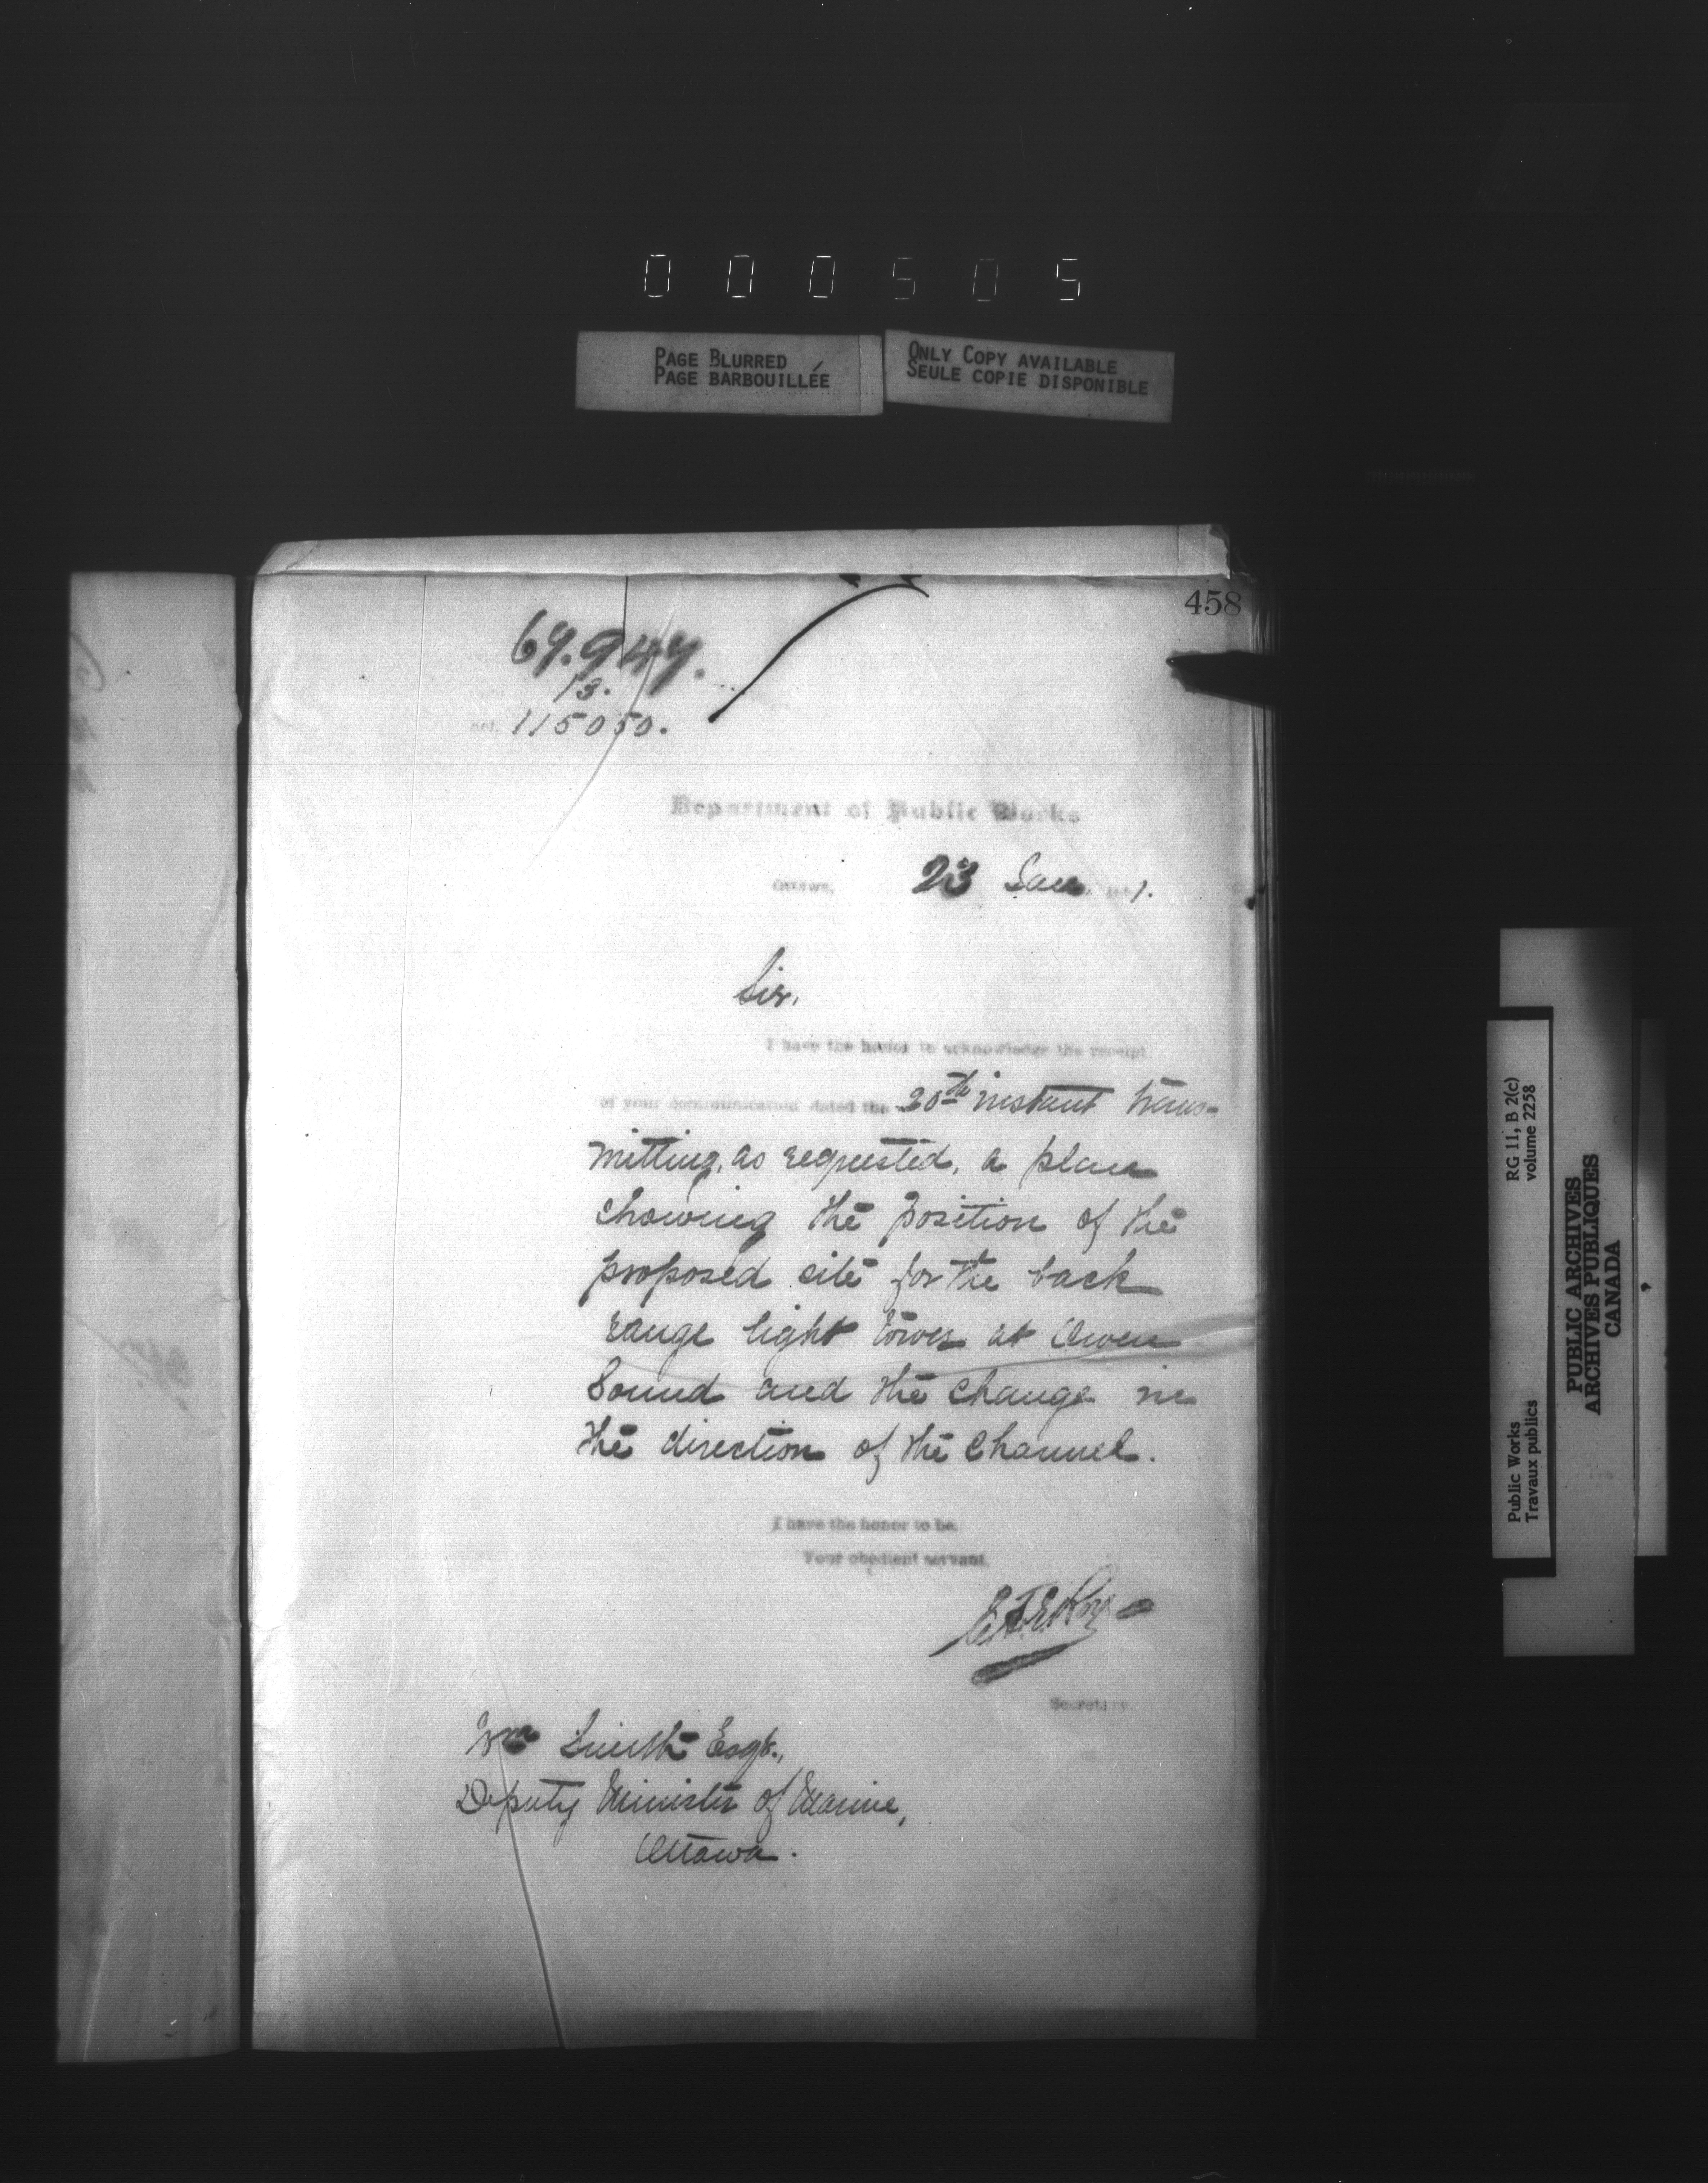 000505
PAGE BLURRED
PAGE BARBOUILLÉE
ONLY COPY AVAILABLE
SEULE COPIE DISPONIBLE
458
69.947.
13.
Ref. 115050.
Department of Public Works
Ottawa, 23 Jan. 1891.
Sir,
I have the honor to acknowledge the receipt
of your communication dated the 20th instant trans-
mitting, as requested, a plan
showing the position of the
proposed site for the back
range light tower at Owen
Sound and the change in
the direction of the Channel.
I have the honor to be,
Your obedient servant,
E.F.E. Roy
Secretary
Wm Smith Esqr.,
Deputy Minister of Marine,
Ottawa.
RG 11, B 2(c)
volume 2258
Public Works
Travaux publics
PUBLIC ARCHIVES
ARCHIVES PUBLIQUES
CANADA